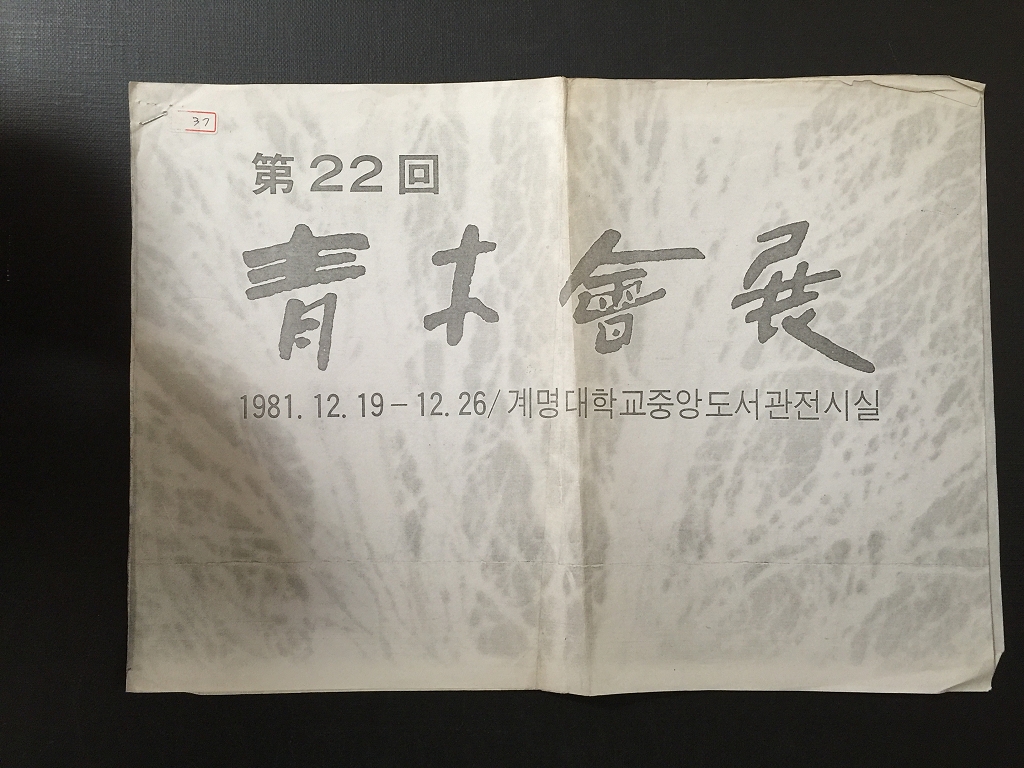 37
第22回
青木會展
1981.12.19-12.26/계명대학교중앙도서관전시실